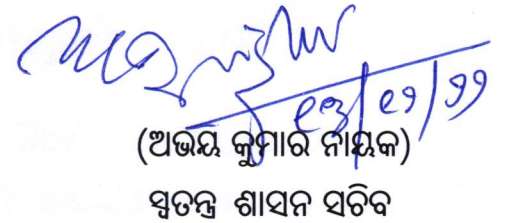 ୧୩/୧୨/୨୨
(ଅଭୟ କୁମାର ନାୟକ)
ସ୍ୱତନ୍ତ୍ର ଶାସନ ସଚିବ